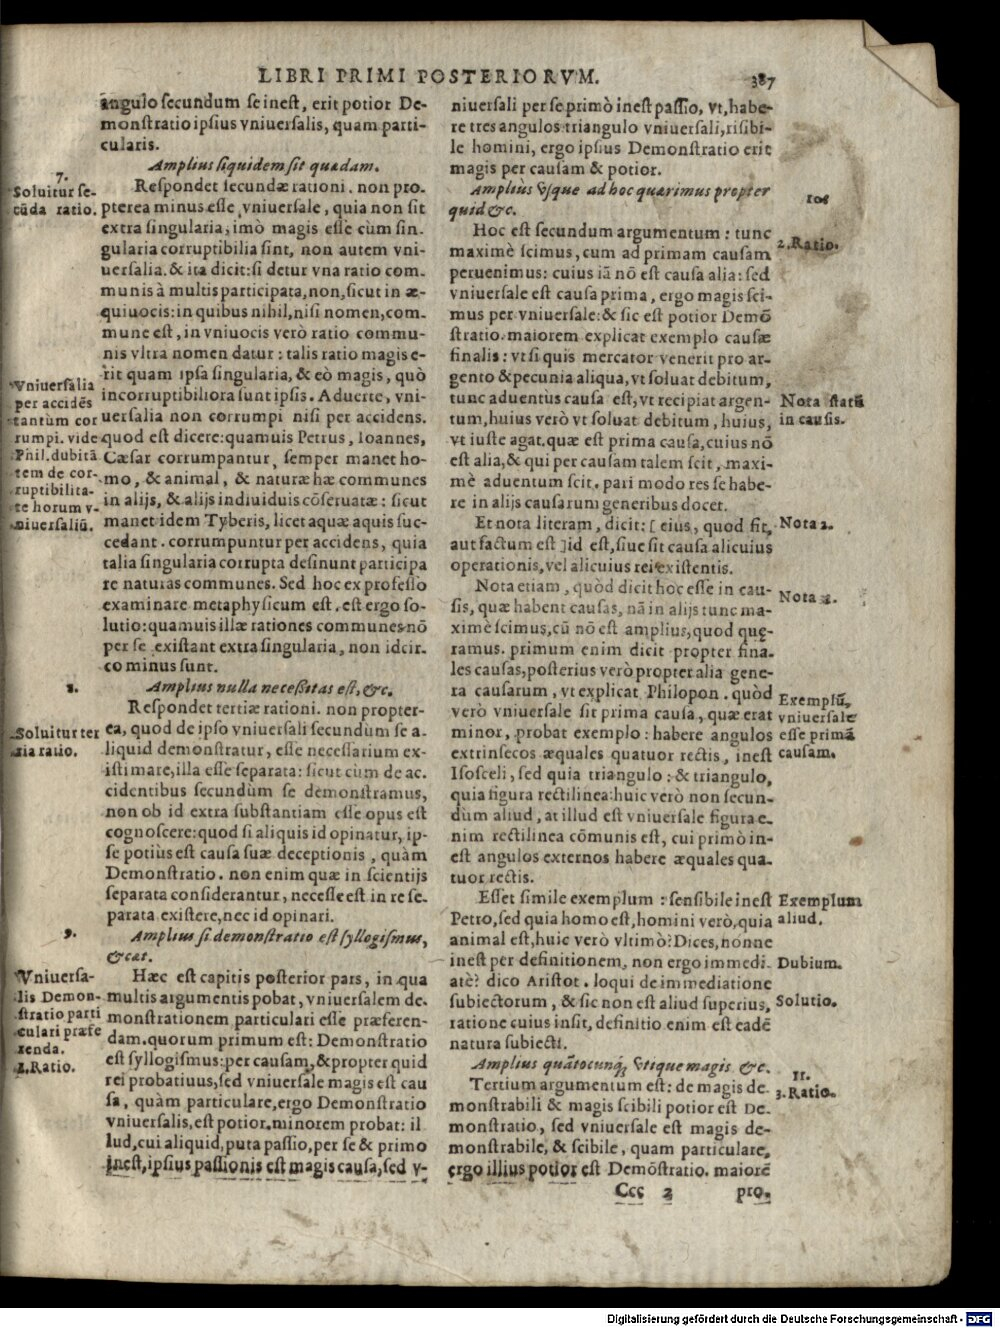 LIBRI PRIMI POSTERIORVM. 387
angulo secundum se inest, erit potior De-
monstratio ipsius vniuersalis, quam parti-
cularis.
Amplius siquidem sit quædam.
7.
Soluitur se-
cūda ratio.
Respondet secundæ rationi. non pro-
pterea minus esse vniuersale, quia non sit
extra singularia, imò magis esse cùm sin-
gularia corruptibilia sint, non autem vni-
uersalia. & ita dicit: si detur vna ratio com-
munis à multis participata, non, sicut in æ-
quiuocis: in quibus nihil, nisi nomen, com-
mune est, in vniuocis verò ratio commu-
nis vltra nomen datur: talis ratio magis e-
rit quam ipsa singularia, & eò magis, quò
incorruptibiliora sunt ipsis. Aduerte, vni-
uersalia non corrumpi nisi per accidens.
quod est dicere: quamuis Petrus, Ioannes,
Cæsar corrumpantur, semper manet ho-
mo, & animal, & naturæ hæ communes
in alijs, & alijs indiuiduis cōseruatæ: sicut
manet idem Tyberis, licet aquæ aquis suc-
cedant. corrumpuntur per accidens, quia
talia singularia corrupta desinunt participa
re naturas communes. Sed hoc ex professo
examinare metaphysicum est, est ergo so-
lutio: quamuis illæ rationes communes nō
per se existant extra singularia, non idcir-
co minus sunt.
Vniuersalia
per accidēs
tantùm cor
rumpi. vide
Phil. dubitā
tem de cor-
ruptibilita-
te horum v-
niuersaliū.
Amplius nulla necessitas est, &c.
8.
Soluitur ter
tia ratio.
Respondet tertiæ rationi. non propter-
ea, quod de ipso vniuersali secundùm se a-
liquid demonstratur, esse necessarium ex-
istimare, illa esse separata: sicut cùm de ac-
cidentibus secundùm se demonstramus,
non ob id extra substantiam esse opus est
cognoscere: quod si aliquis id opinatur, ip-
se potiùs est causa suæ deceptionis, quàm
Demonstratio. non enim quæ in scientijs
separata considerantur, necesse est in re se-
parata existere, nec id opinari.
9.
Amplius si demonstratio est syllogismus,
&cæt.
Vniuersa-
lis Demon-
stratio parti
culari præfe
renda.
1. Ratio.
Hæc est capitis posterior pars, in qua
multis argumentis pobat, vniuersalem de-
monstrationem particulari esse præferen-
dam. quorum primum est: Demonstratio
est syllogismus: per causam, & propter quid
rei probatiuus, sed vniuersale magis est cau
sa, quàm particulare, ergo Demonstratio
vniuersalis, est potior. minorem probat: il
lud, cui aliquid, puta passio, per se & primo
inest, ipsius passionis est magis causa, sed v-
niuersali per se primò inest passio, vt, habe-
re tres angulos triangulo vniuersali, risibi-
le homini, ergo ipsius Demonstratio erit
magis per causam & potior.
Ampliùs vsque ad hoc quærimus propter
quid &c.
10.
2. Ratio.
Hoc est secundum argumentum: tunc
maximè scimus, cum ad primam causam
peruenimus: cuius iā nō est causa alia: sed
vniuersale est causa prima, ergo magis sci-
mus per vniuersale: & sic est potior Demō
stratio. maiorem explicat exemplo causæ
finalis: vt si quis mercator venerit pro ar-
gento & pecunia aliqua, vt soluat debitum,
tunc aduentus causa est, vt recipiat argen-
tum, huius verò vt soluat debitum, huius,
vt iuste agat. quæ est prima causa, cuius nō
est alia, & qui per causam talem scit, maxi-
mè aduentum scit. pari modo res se habe-
re in alijs causarum generibus docet.
Nota statū
in causis.
Et nota literam, dicit: [ eius, quod fit,
aut factum est ] id est, siue sit causa alicuius
operationis, vel alicuius rei existentis.
Nota 2.
Nota etiam, quòd dicit hoc esse in cau-
sis, quæ habent causas, nā in alijs tunc ma-
ximè scimus, cū nō est amplius, quod quę-
ramus. primum enim dicit propter fina-
les causas, posterius verò propter alia gene-
ra causarum, vt explicat Philopon. quòd
verò vniuersale sit prima causa, quæ erat
minor, probat exemplo: habere angulos
extrinsecos æquales quatuor rectis, inest
Isosceli, sed quia triangulo: & triangulo,
quia figura rectilinea: huic verò non secun-
dùm aliud, at illud est vniuersale figura e-
nim rectilinea cōmunis est, cui primò in-
est angulos externos habere æquales qua-
tuor rectis.
Nota
Exemplū,
vniuersale
esse primā
causam.
Esset simile exemplum: sensibile inest
Petro, sed quia homo est, homini verò, quia
animal est, huic verò vltimò? Dices, nonne
inest per definitionem, non ergo immedi-
atè? dico Aristot. loqui de immediatione
subiectorum, & sic non est aliud superius,
ratione cuius insit, definitio enim est eadē
natura subiecti.
Exemplum
aliud.
Dubium.
Solutio.
Amplius quātocunq; vtique magis &c.
11.
3. Ratio.
Tertium argumentum est: de magis de-
monstrabili & magis scibili potior est De-
monstratio, sed vniuersale est magis de-
monstrabile, & scibile, quam particulare,
ergo illius potior est Demōstratio. maiorē
Ccc 2 pro.
Digitalisierung gefördert durch die Deutsche Forschungsgemeinschaft - DFG